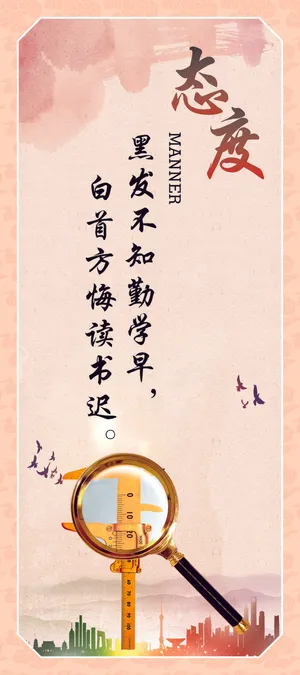 态度
MANNER
黑发不知勤学早，
白首方悔读书迟。
0
10
20